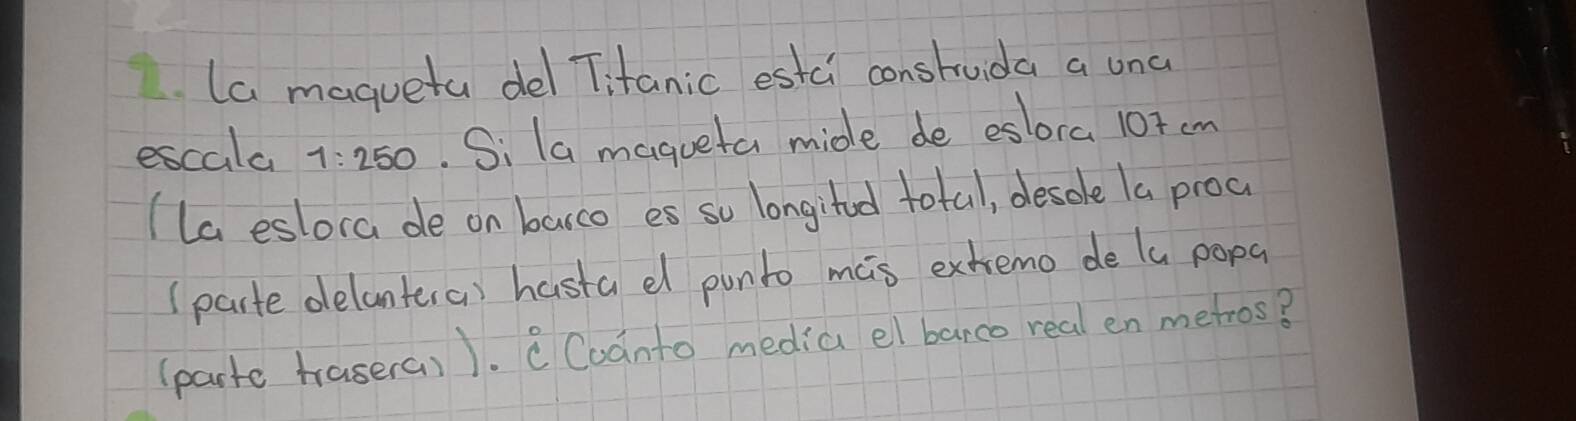 2. La maqueta del Titanic está construida a una
escala 1:250. Si la maqueta mide de eslora 107 cm
(La eslora de un barco es su longitud total, desde la proa
(parte delantera) hasta el punto más extremo de la popa
(parte trasera)). ¿Cuánto media el barco real en metros?